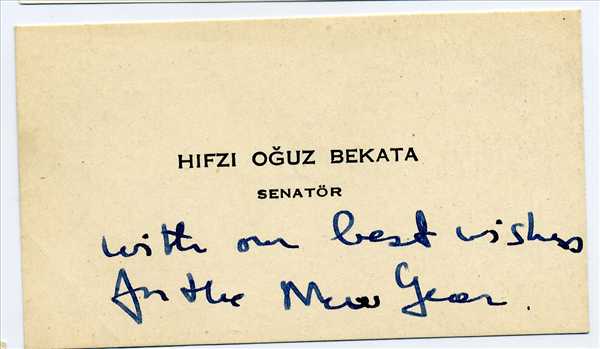 HIFZI OĞUZ BEKATA
SENATÖR
with our best wishes
for the New Year.